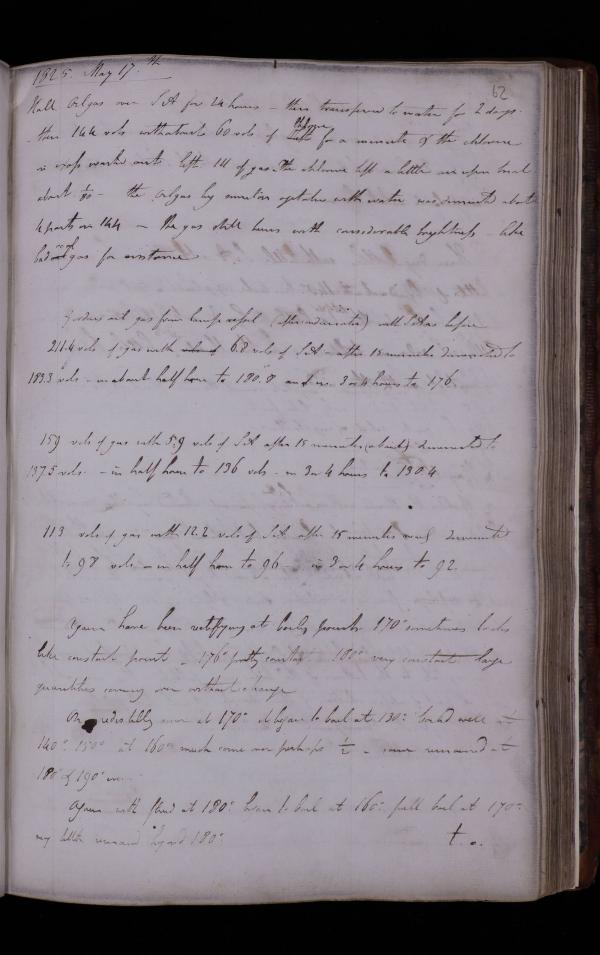 1825. May 17th
62
Oil gas over S A for 24 hours - then transferred to water for 2 days.
then 144 vols with about 60 vols of for a minute & the chlorine
in excess washed out. left 111 of gas. The chlorine left a little air upon
about 1/80 - the Oil gas by similar agitation with water was diminished about
4 parts in 144 - The gas still burns with considerable brightness - like
coal gas for instance
Gordons oil gas from lamp vessel (after ) with S A as before
211.4 vols of gas with 6.8 vols of S A - after 15 minutes diminished to
183.3 vols - in about half hour to 180.8 and in 3 or 4 hours to 176.
159 vols of gas with 5.9 vols of S A after 15 minutes (about) diminished to
137.5 vols. - in half hour to 136 vols - in 3 or 4 hours to 130.4
113 vols of gas with 12.2 vols of S A after 15 minutes diminished
to 98 vols - in half hour to 96 - in 3 or 4 hours to 92.
Again have been rectifying at boiling points. 170° sometimes looks
like constant point - 176° pretty constant 180° very constant large
quantities coming over without change
On redistilling at 170° it began to boil at 130°: boiled well at
140°. 150° at 160° much came over perhaps 1/2 - some remained at
180° & 190° even
Again with fluid at 180° began to boil at 160° full boil at 170°
very little remained beyond 180°
t.o.